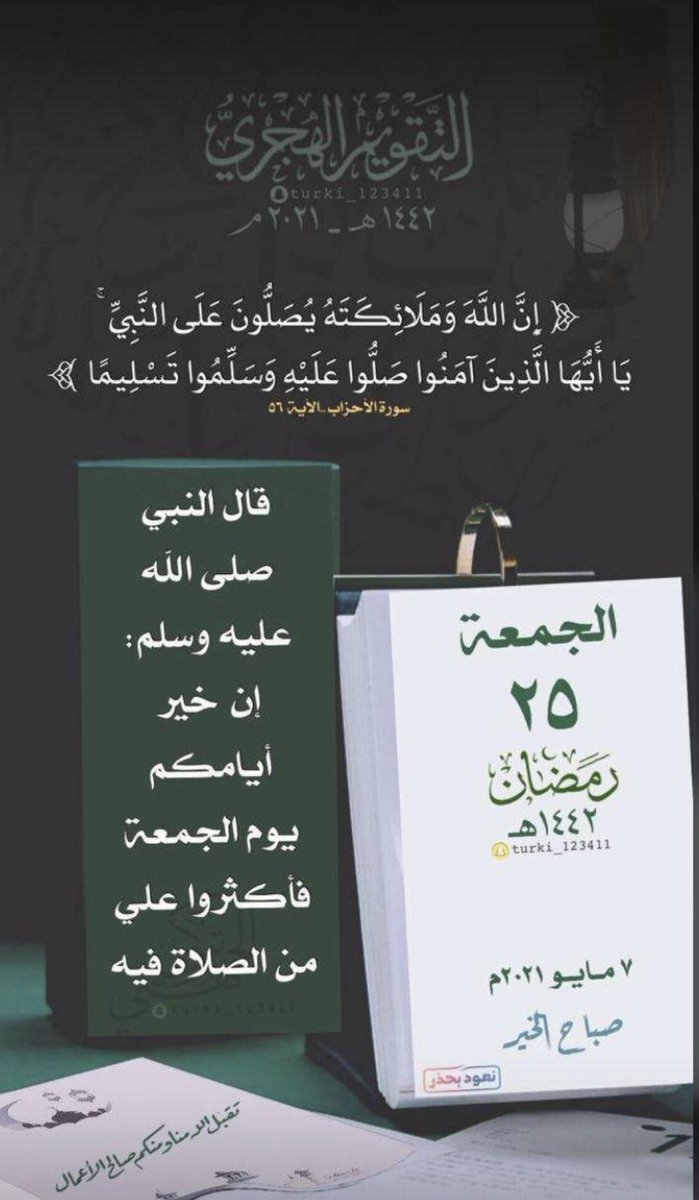 التقويم الهجري
turki_123411
١٤٤٢ هـ - ٢٠٢١ م
﴿ إِنَّ اللَّهَ وَمَلَائِكَتَهُ يُصَلُّونَ عَلَى النَّبِيِّ ۚ
يَا أَيُّهَا الَّذِينَ آمَنُوا صَلُّوا عَلَيْهِ وَسَلِّمُوا تَسْلِيمًا ﴾
سورة الأحزاب ..الآية ٥٦
قال النبي
صلى الله
عليه وسلم:
إن خير
أيامكم
يوم الجمعة
فأكثروا علي
من الصلاة فيه
turki_123411
الجمعة
٢٥
رمضان
١٤٤٢هـ
turki_123411
٧ مايو ٢٠٢١م
صباح الخير
نعود بحذر
تقبل الله منا ومنكم صالح الأعمال